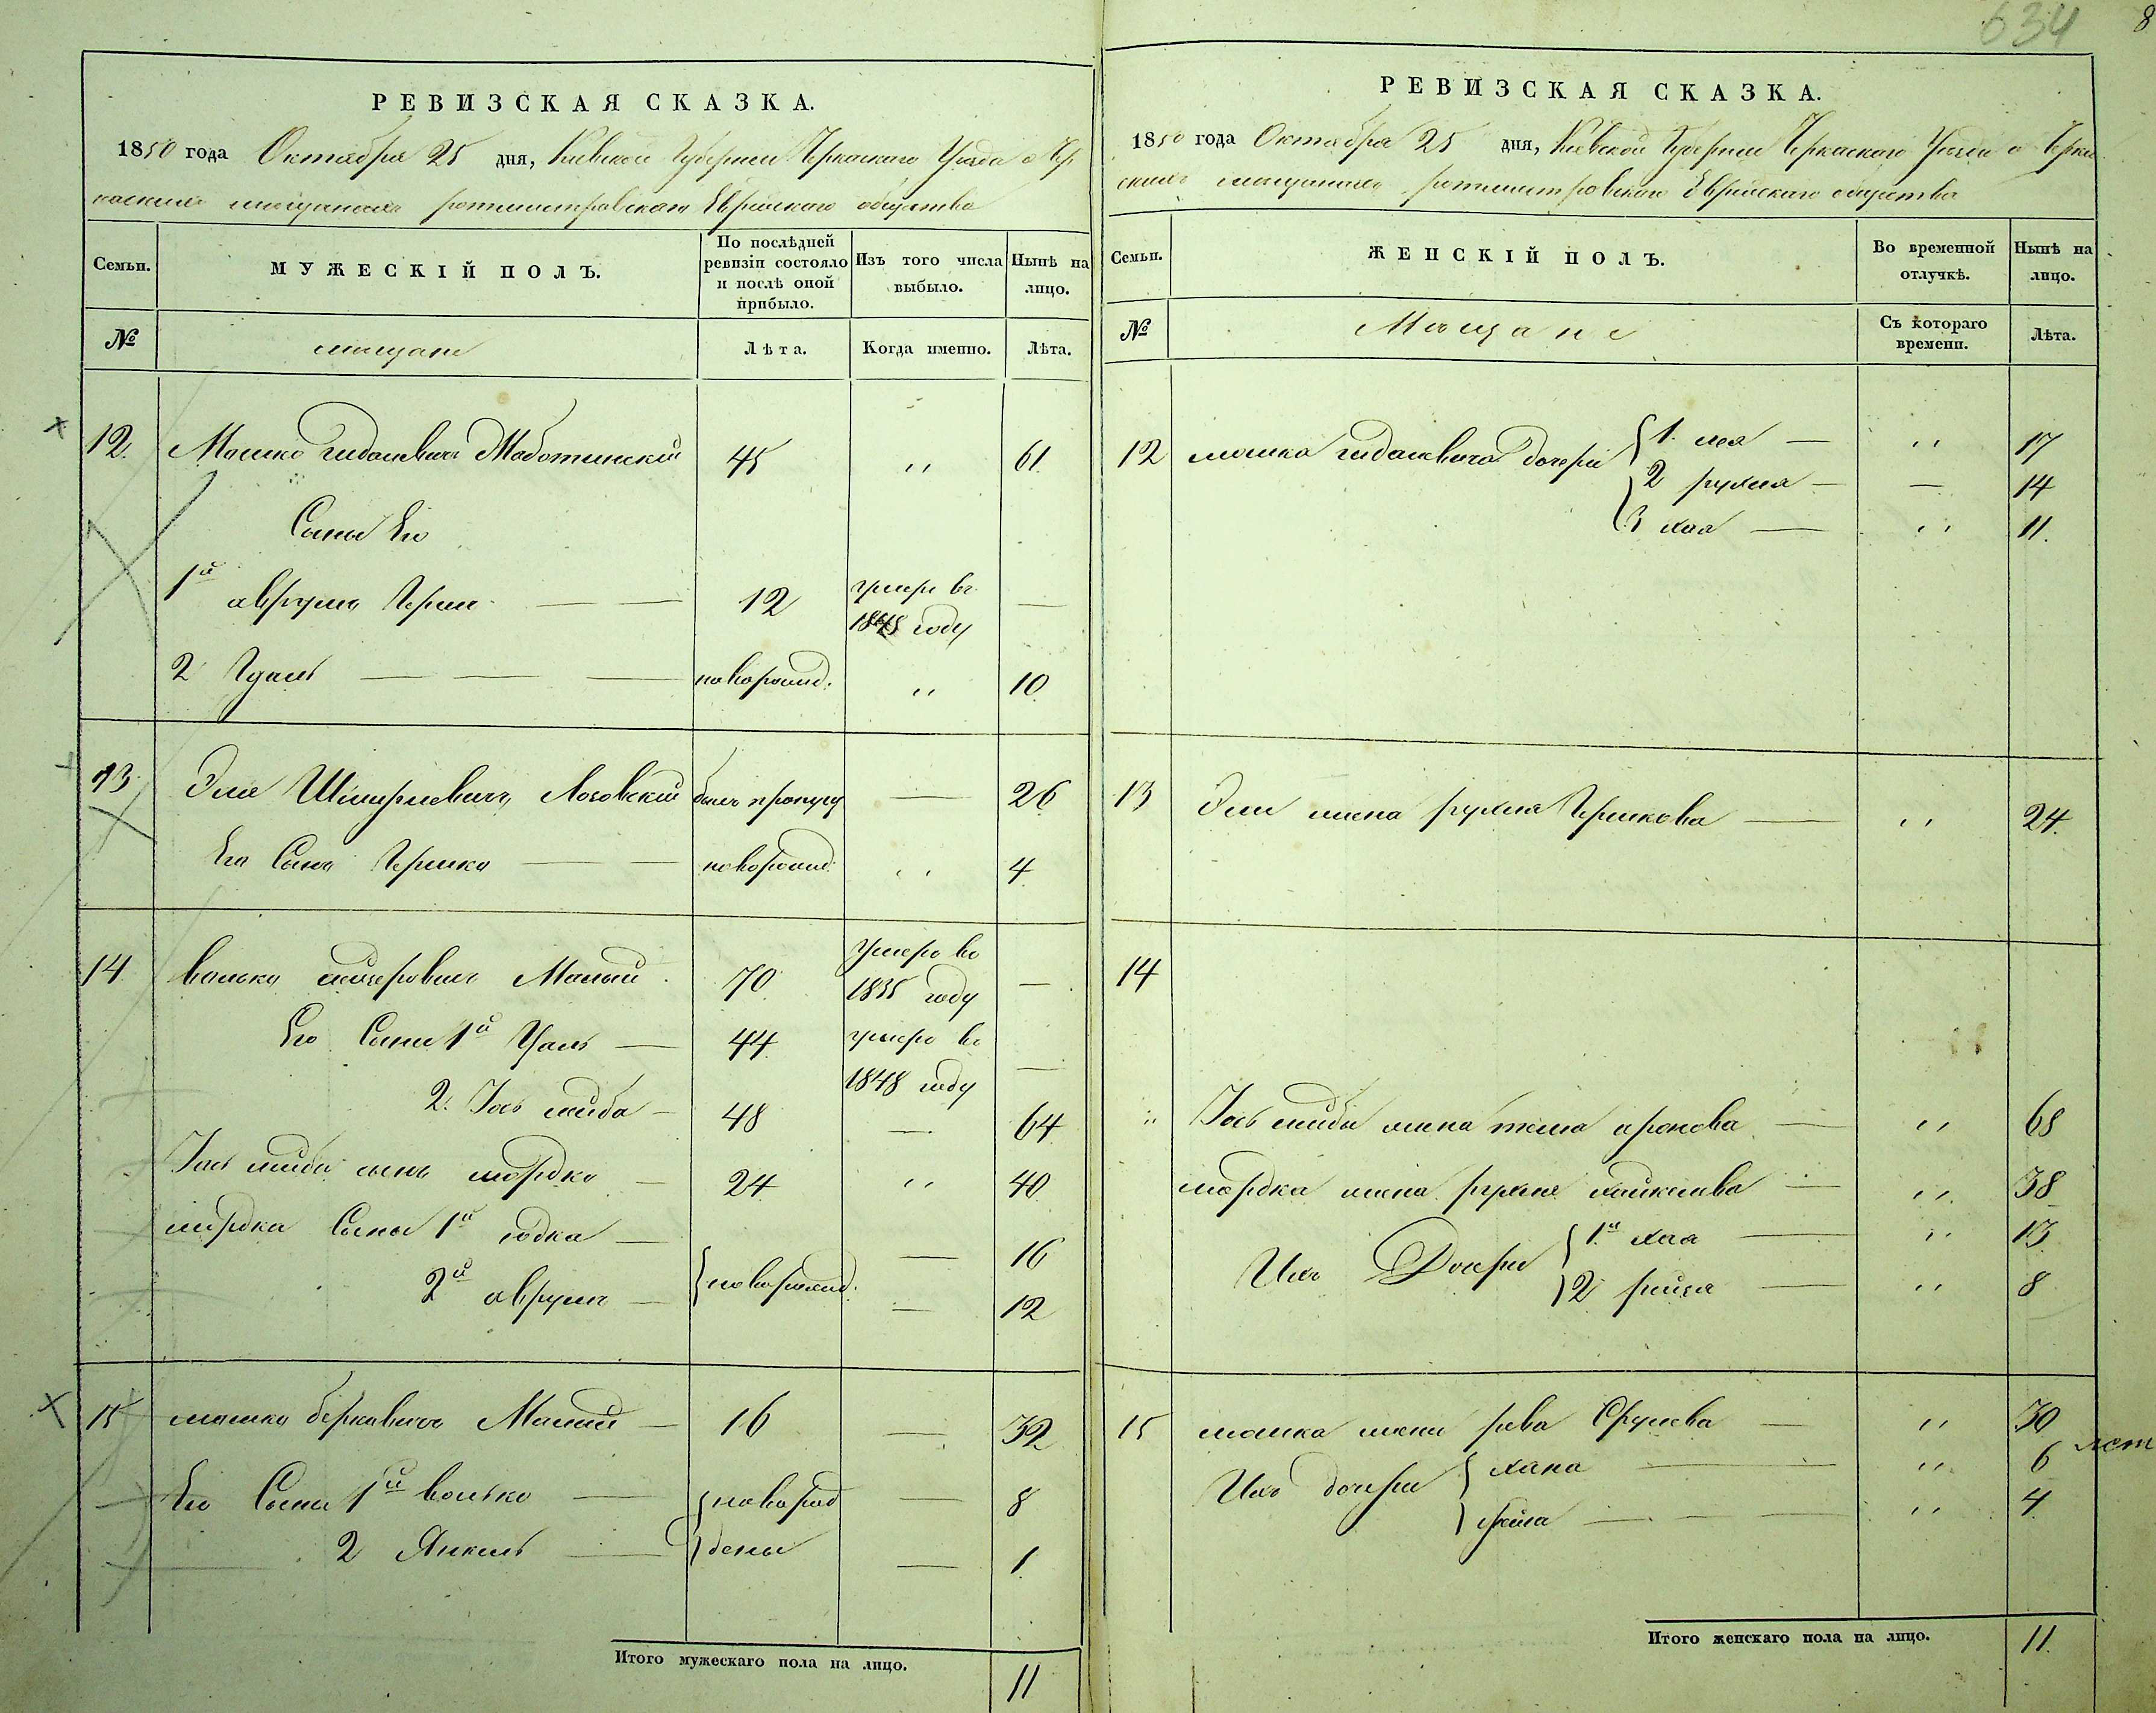 634
8
РЕВИЗСКАЯ СКАЗКА.
1850 года Октября 25 дня, Киевской Губернии Черкаскаго Уезда о Чер
каскихъ мещанахъ ротмистровскаго Еврейскаго общества
Семьи.
МУЖЕСКІЙ ПОЛЪ.
По послѣдней ревизіи состояло и послѣ оной прибыло.
Изъ того числа выбыло.
Нынѣ на лицо.
№
мещане
Лѣта.
Когда именно.
Лѣта.
12. Мошко Гидалевичъ Жаботинский 45 " 61.
Сыны Его
1й аврумъ Герш — — 12 умеръ въ —
1845 году
2 — — — новорожд. " 10
13 Эля Шмерлевичъ Лозовский былъ пропущ — 26
Его Сынъ Гершко — — новорожд. " 4
14 волько Малый 70 Умеръ въ —
1835 году
Его Сыны 1й — 44 умеръ въ —
1848 году
2. Іось — 48 — 64
Іось сынъ мордко — 24 " 40
мордка Сыны 1й — 16
2й аврумъ — новорожд. — 12
15 мошко берковичъ Малый — 16 — 32
Его Сыны 1й волько — новорож — 8
2 Янкель — дены — 1
Итого мужескаго пола на лицо. 11
РЕВИЗСКАЯ СКАЗКА.
1850 года Октября 25 дня, Киевской Губернии Черкаскаго Уезда о Черка
скихъ мещанахъ ротмистровскаго Еврейскаго общества
Семьи.
ЖЕНСКІЙ ПОЛЪ.
Во временной отлучкѣ.
Нынѣ на лицо.
№
Мещане
Съ котораго времени.
Лѣта.
12 мошка гидалевича дочери 1. лея — " 17
2 рухля — — 14
3 хая — " 11.
13 Эли жена рухля Гершкова — " 24.
14
" Іось жена аронова — " 68
мордка жена рухля — " 38
Ихъ Дочери 1я хая — " 13
2 — " 8
15 мошка жена Срулева — " 30
Ихъ дочери хана — " 6
— — — " 4
Итого женскаго пола на лицо. 11.